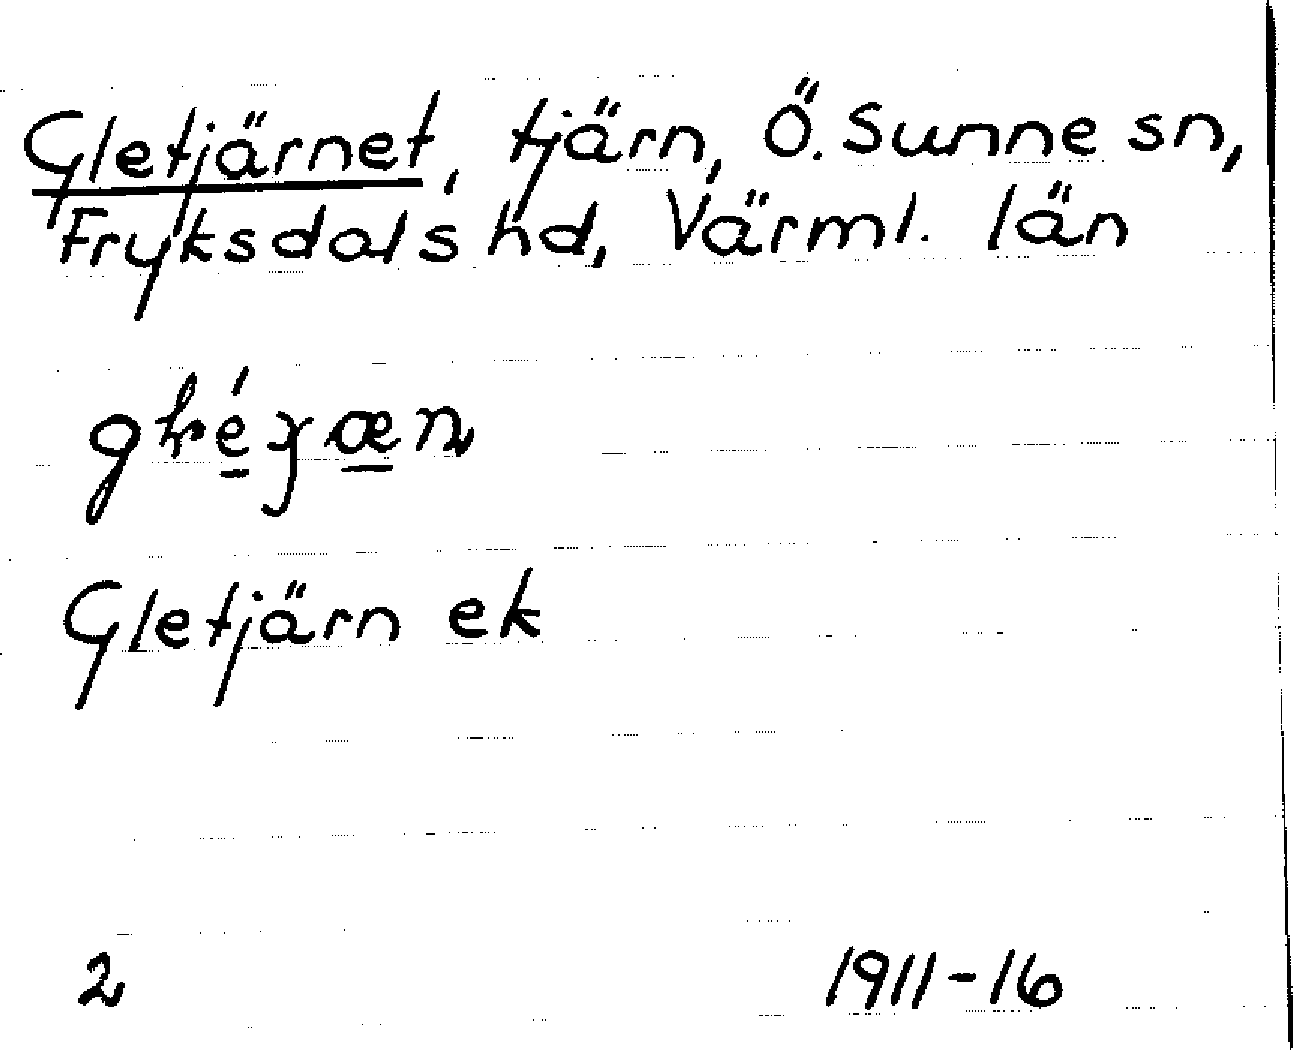 Gletjärnet, tjärn, Ö. Sunne sn,
Fryksdals hd, Värml. län
Gletjärn ek
2 1911-16